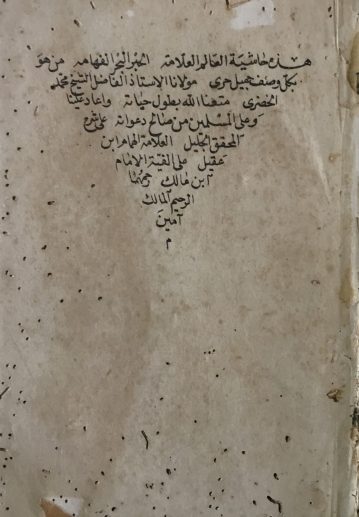 هذه حاشية العالم العلامة الحبر البحر الفهامة من هو
بكل وصف جميل حرى مولانا الاستاذ الفاضل الشيخ محمد
الخضرى متعنا الله بطول حياته واعاد علينا
وعلى المسلمين من صالح دعواته على شرح
المحقق الجليل العلامة الهمام ابن
عقيل على الفية الامام
ابن مالك رحمهما
الرحيم المالك
آمين
م